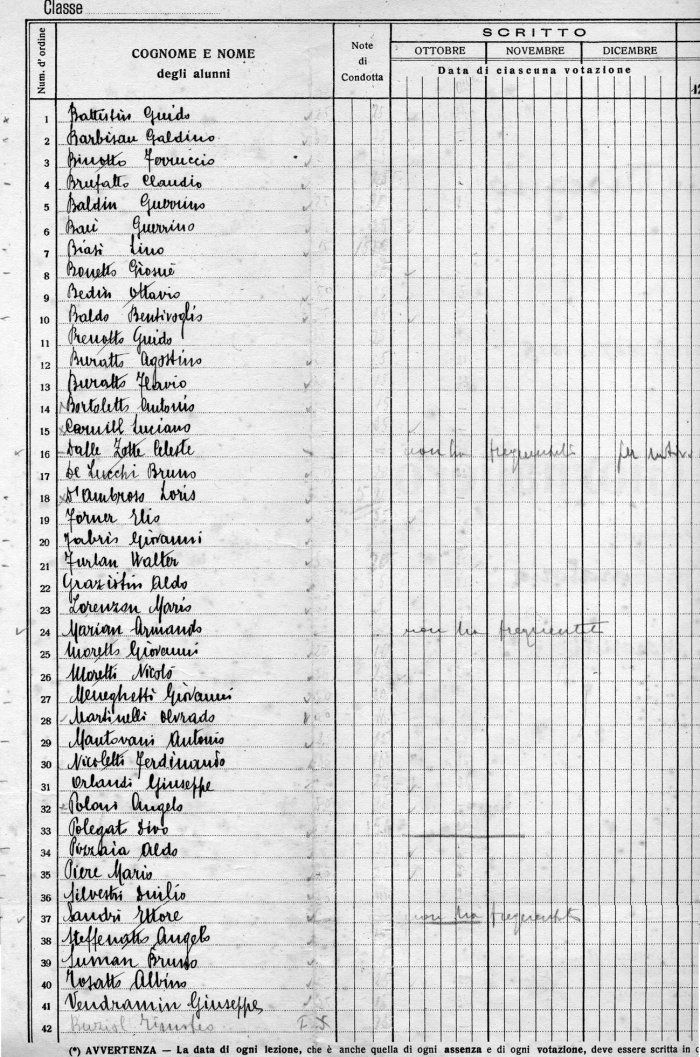 Classe
Num. d' ordine
COGNOME E NOME
degli alunni
Note
di
Condotta
SCRITTO
OTTOBRE NOVEMBRE DICEMBRE
Data di ciascuna votazione
1 Battistin Guido
2 Barbisan Galdino
3 Binotto Ferruccio
4 Brufatto Claudio
5 Baldin Guerrino
6 Guerrino
7 Biasi Lino
8 Bonetto Giosuè
9 Bedin Ottavio
10 Baldo Bentivoglio
11 Guido
12 Buratto Agostino
13 Buratto Flavio
14 Bortoletto Antonio
15 Luciano
16 Dalle Zotte Celeste non ha frequentato per
17 De Lucchi Bruno
18 D'Ambroso Loris
19 Forner Elio
20 Fabris Giovanni
21 Furlan Walter
22 Graziotin Aldo
23 Lorenzon Mario
24 Marian Armando non ha frequentato
25 Moretto Giovanni
26 Moretti Nicolò
27 Meneghetti Giovanni
28 Martinelli
29 Mantovani Antonio
30 Nicoletti Ferdinando
31 Orlandi Giuseppe
32 Poloni Angelo
33 Polegato Divo
34 Aldo
35 Piere Mario
36 Silvestri Duilio
37 Sandri Ettore non ha frequentato
38 Steffenatto Angelo
39 Suman Bruno
40 Tosatto Albino
41 Vendramin Giuseppe
42
(*) AVVERTENZA — La data di ogni lezione, che è anche quella di ogni assenza e di ogni votazione, deve essere scritta in